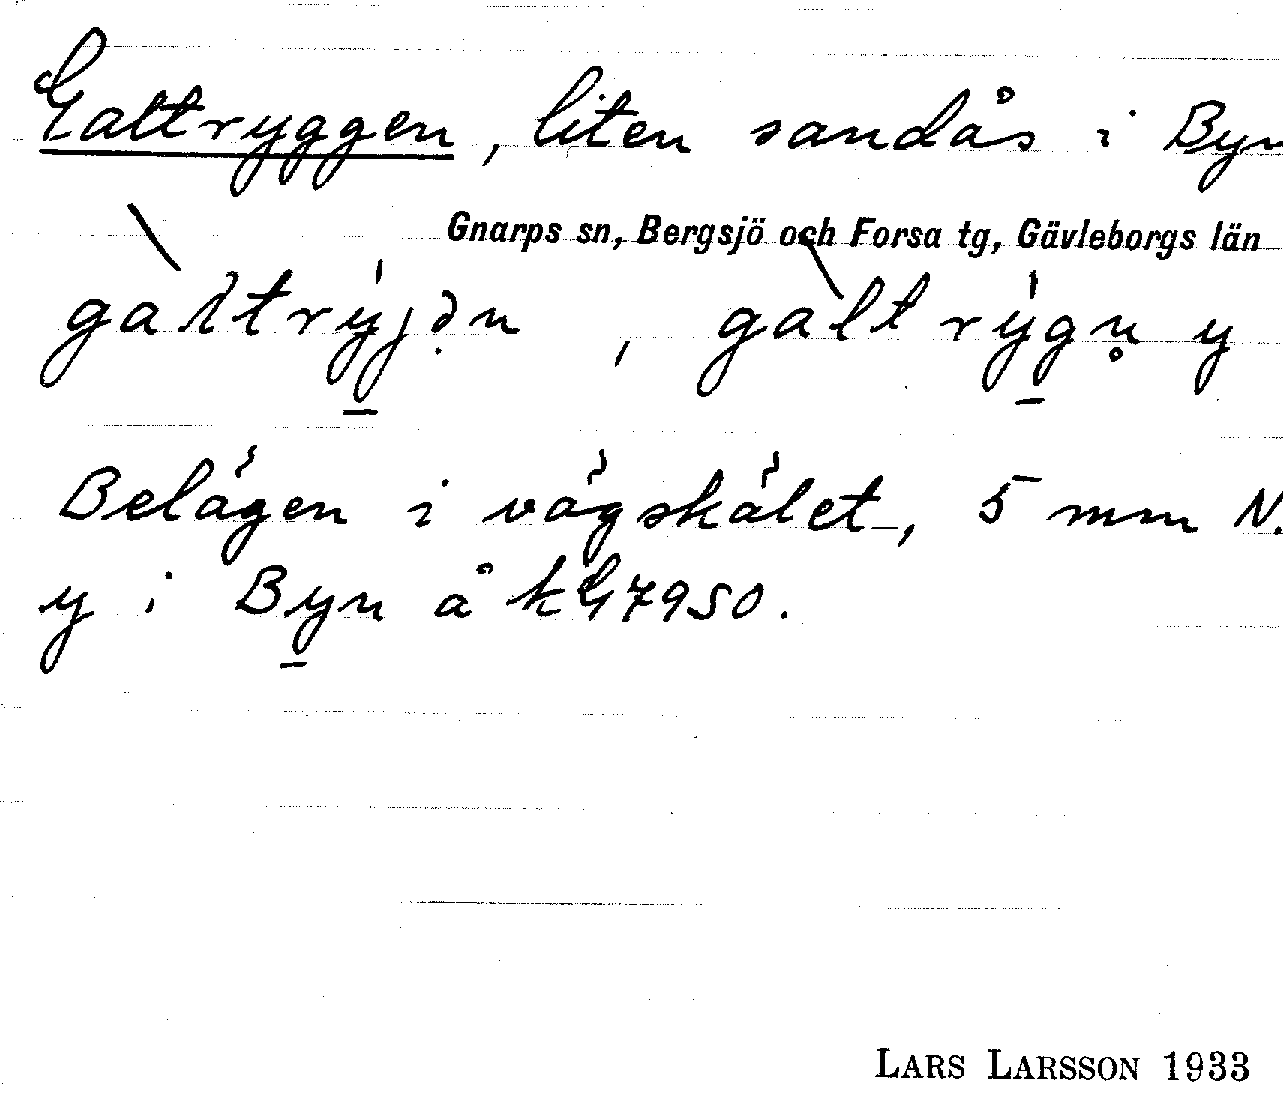 Galtryggen, liten sandås i Byn
Gnarps sn, Bergsjö och Forsa tg, Gävleborgs län
gàltrýjən, gàltrýgn̥ y
Belägen i vägskälet, 5 mm N.
y i Byn å kG7950.
LARS LARSSON 1933